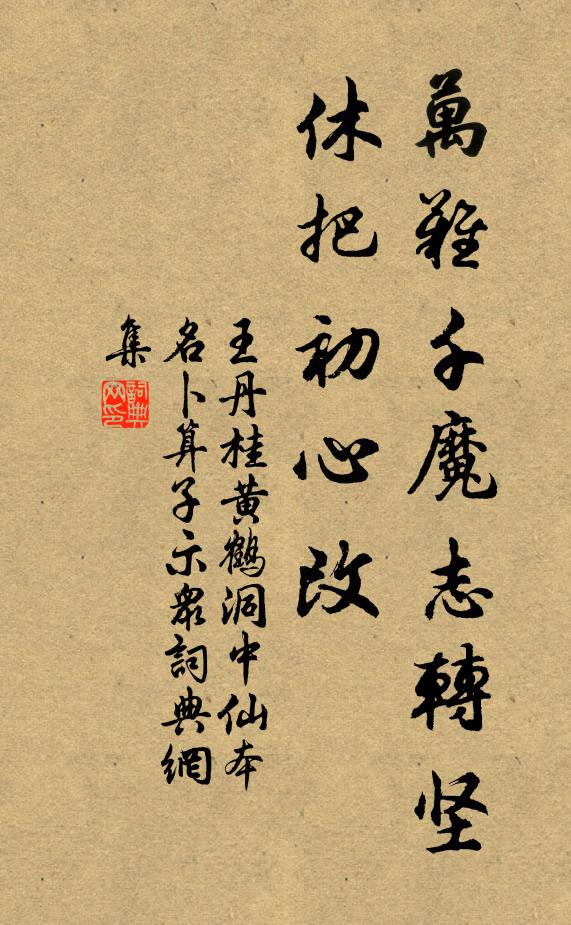 萬難千魔志轉坚
休把初心改
王丹桂黄鶴洞中仙本
名卜算子示衆詞典網
集
詞典
网印